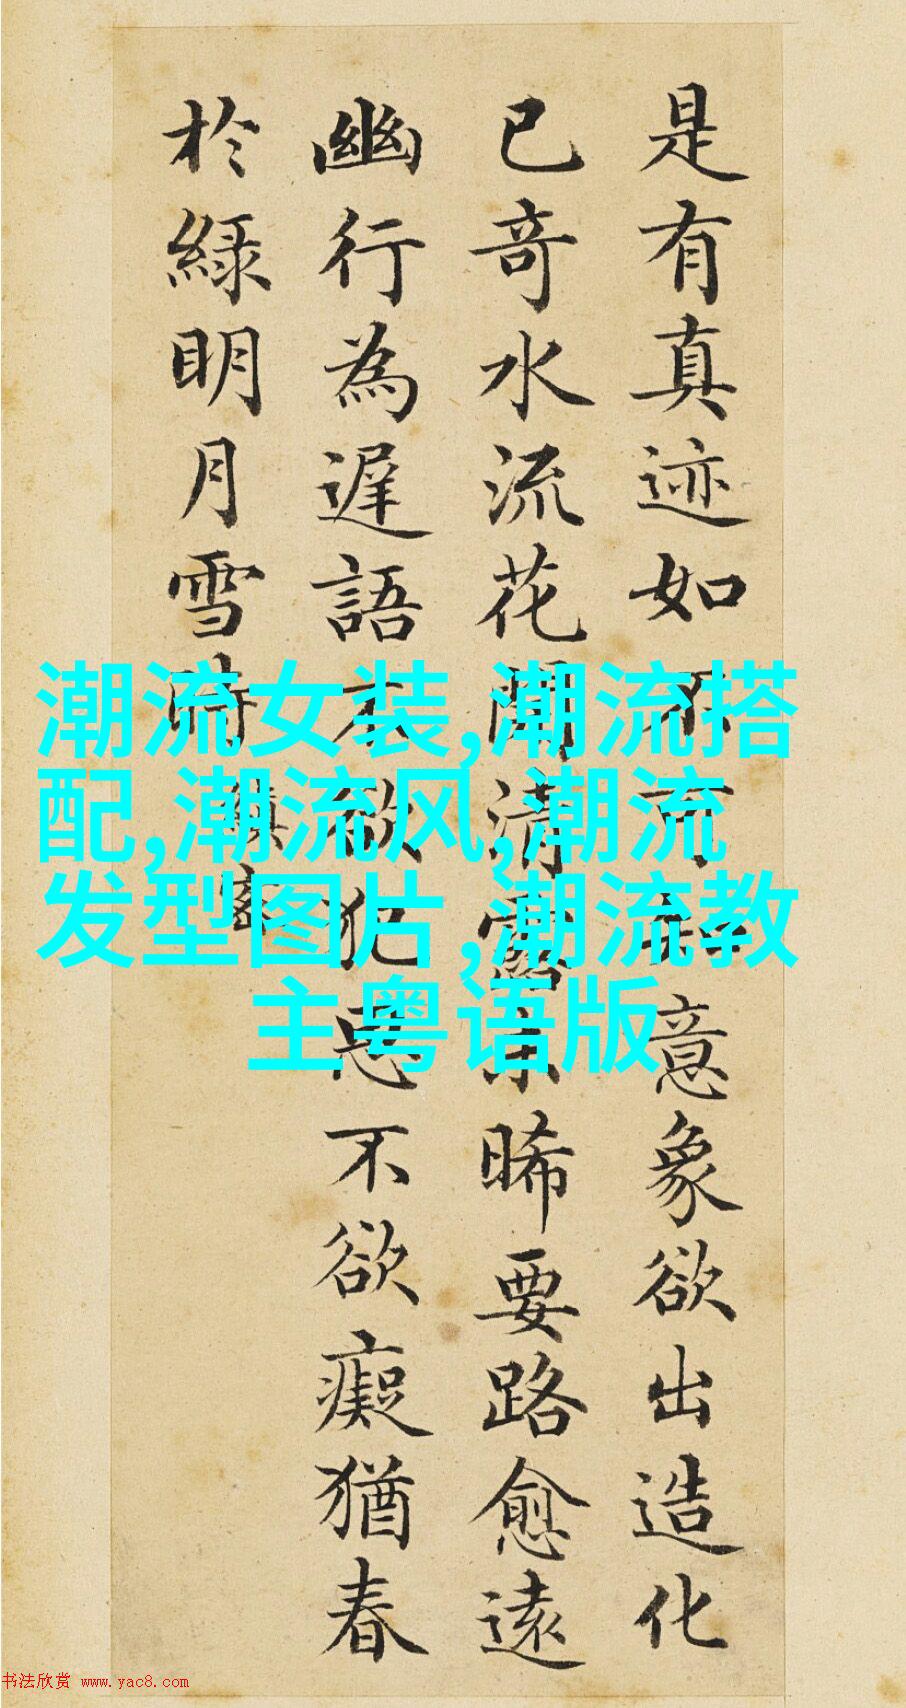 是有真迹如不可意象欲出造化
已奇水流花開清露未晞要路愈遠
幽行為遲語不欲犯思不欲癡猶春
於綠明月雪時
縝密
潮流女装,潮流搭
配,潮流风,潮流
发型图片,潮流教
主粤语版
书法欣赏 www.yac8.com